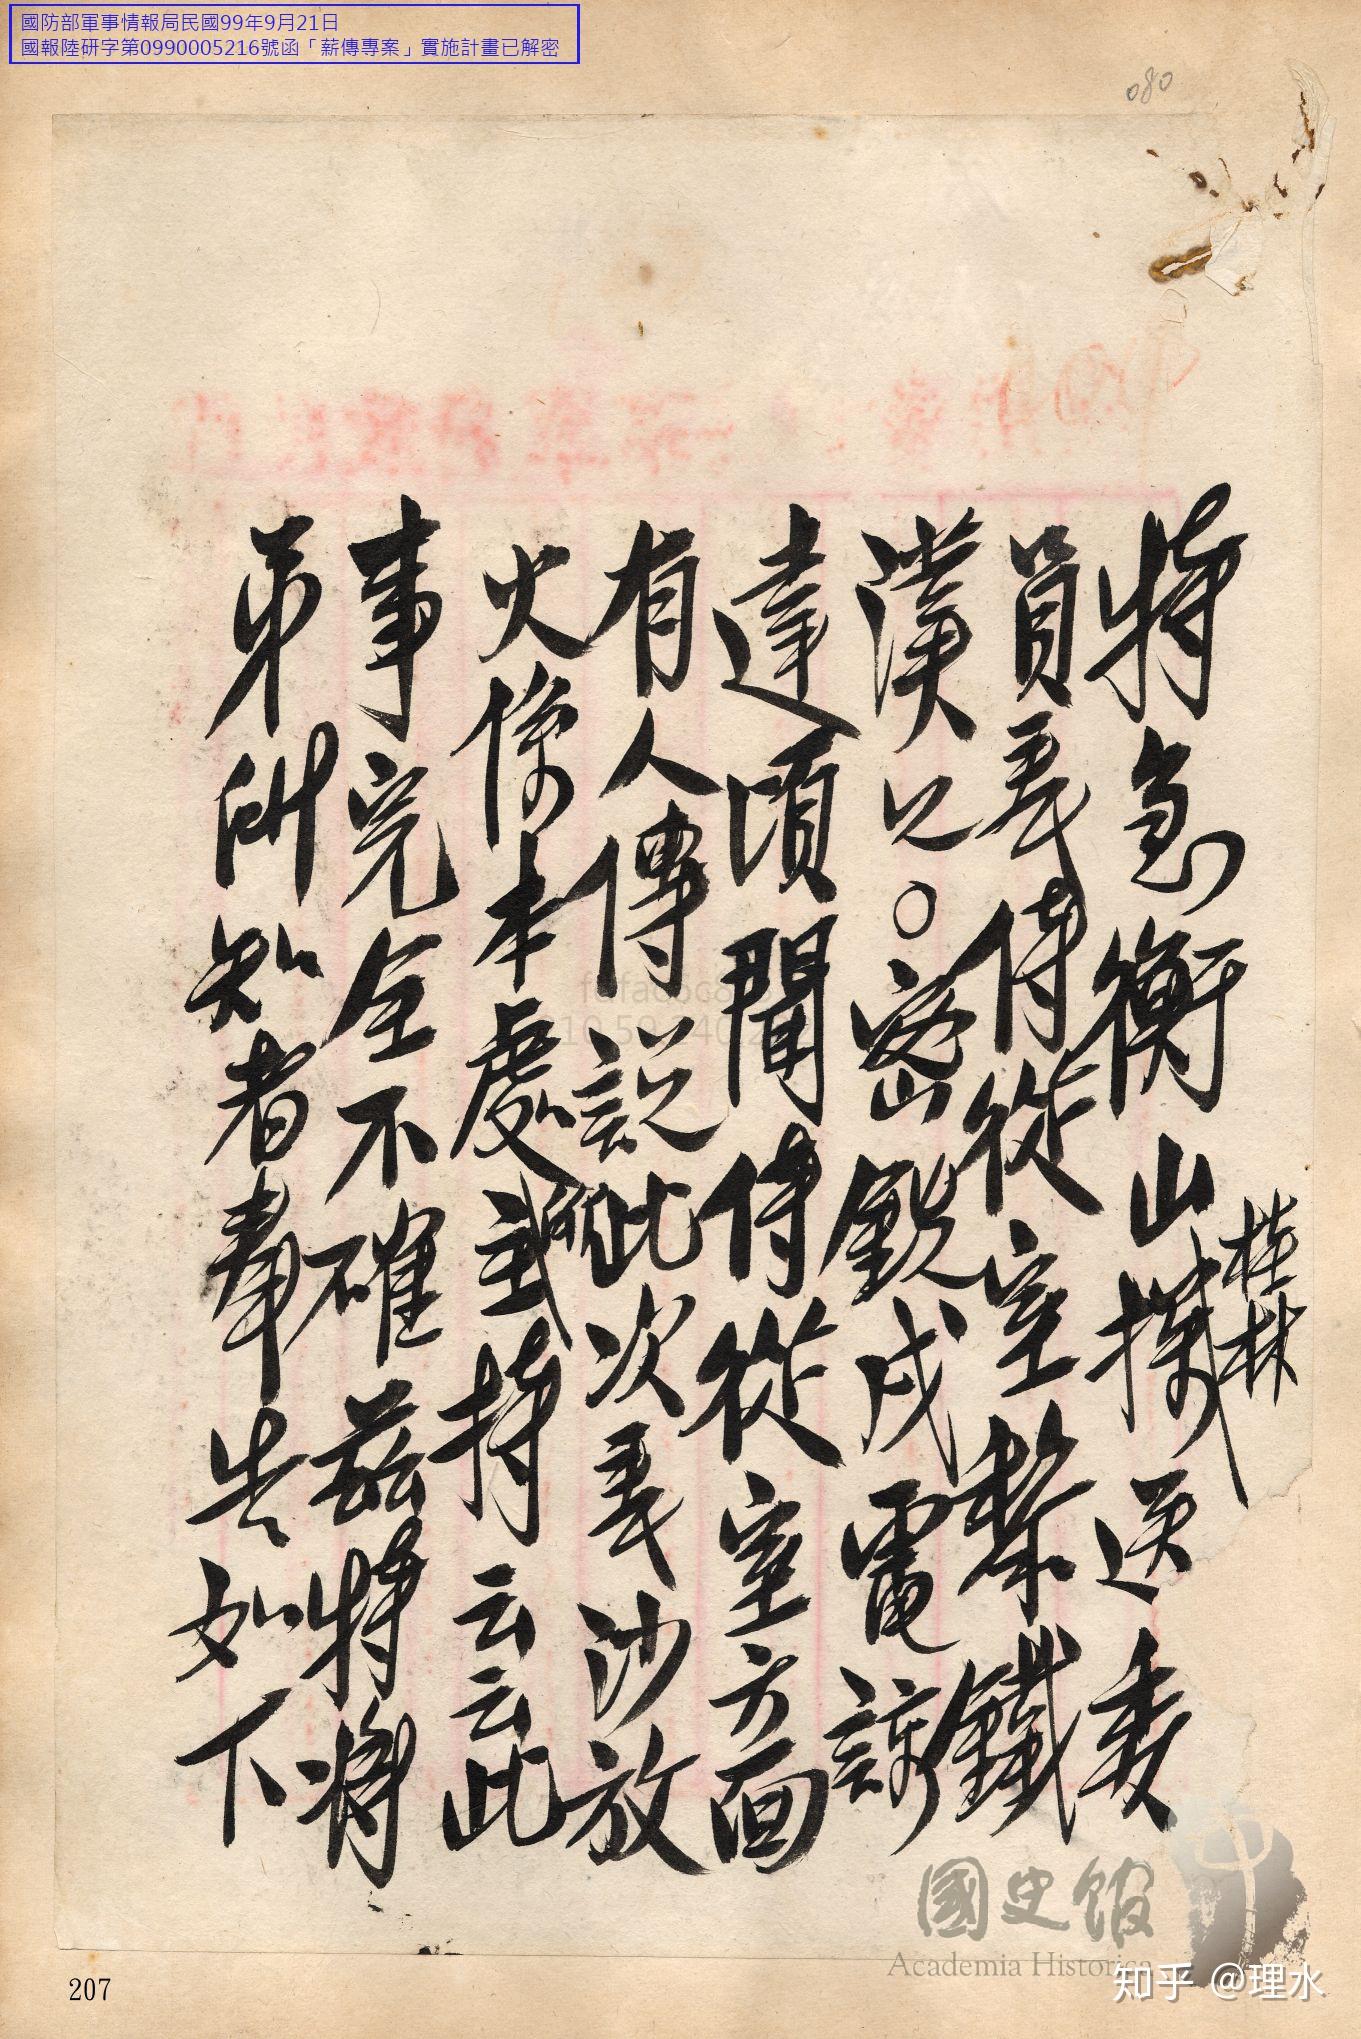 國防部軍事情報局民國99年9月21日
國報陸研字第0990005216號函「薪傳專案」實施計畫已解密
080
特急衡山探送委
桂林
員長侍從室黎鐵
漢兄○密銳戌電諒
達頃聞侍從室方面
有人傳說此次長沙放
火係本處所主持云云此
事完全不確茲特將
弟所知者奉告如下
國史館
Academia Historica
知乎 @理水
207